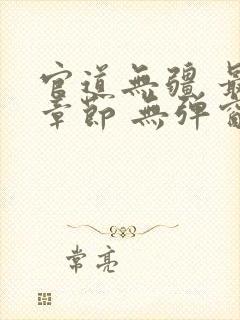 官道無疆 最
章節 無彈窗
常亮